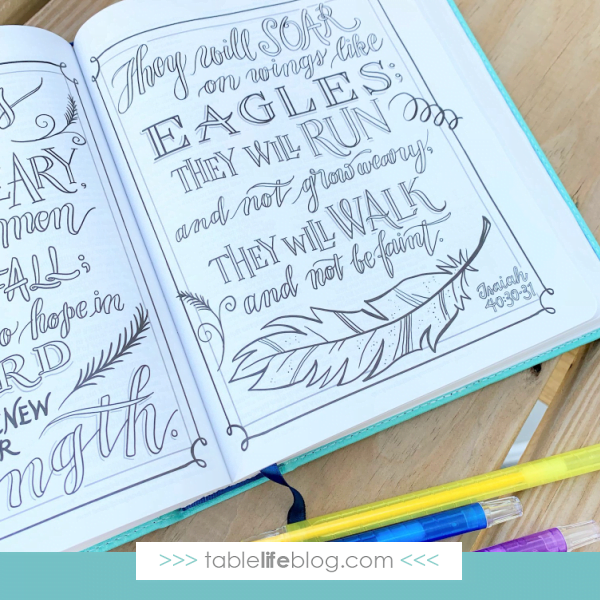 EARY,
men
FALL;
o hope in
RD
NEW
R
ngth.
They will SOAR
on wings like
EAGLES;
THEY WILL RUN
and not grow weary,
THEY WILL WALK
and not be faint.
Isaiah
40:30-31
>>> tablelifeblog.com <<<